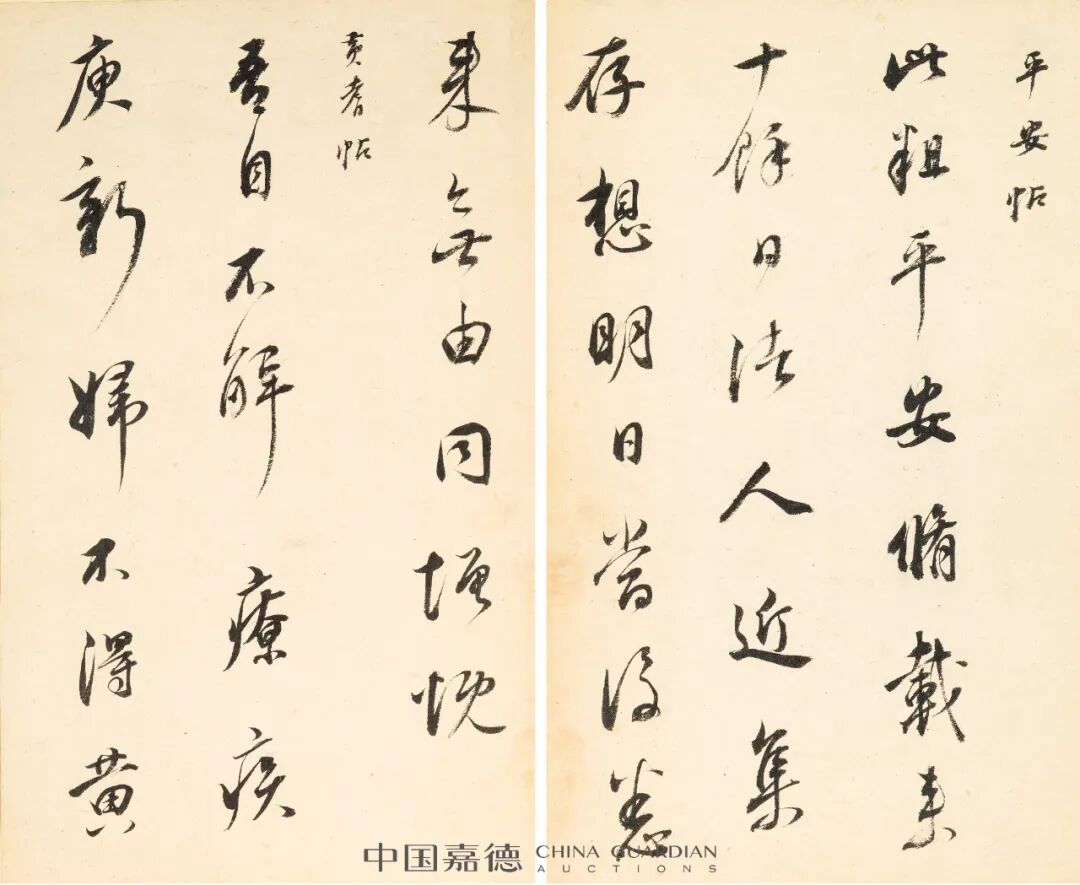 平安帖
此粗平安脩載来
十餘日諸人近集
存想明日當復悉
来無由同增慨
黄耆帖
吾目不解療疾
庾新婦不得黄
中国嘉德 CHINA GUARDIAN AUCTIONS